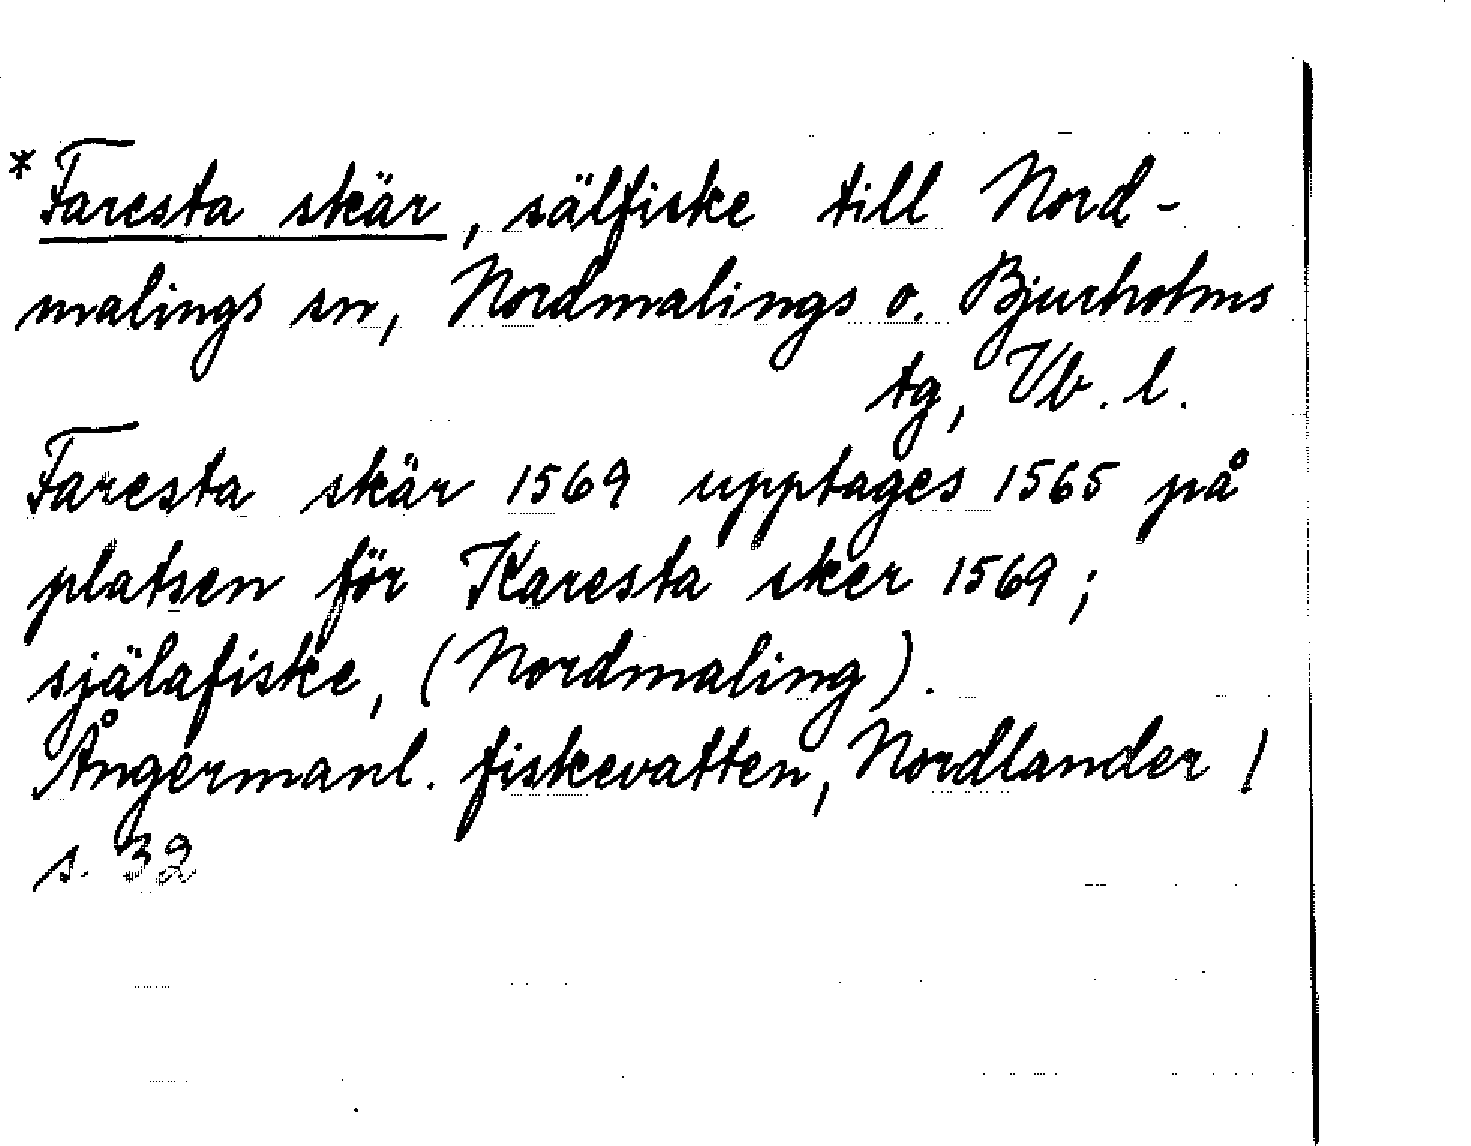 * Faresta skär, sälfiske till Nord-
malings sn, Nordmalings o. Bjurholms
tg, Vb. l.
Faresta skär 1569 upptages 1565 på
platsen för Karesta sker 1569;
själafiske, (Nordmaling).
Ångermanl. fiskevatten, Nordlander /
s. 32